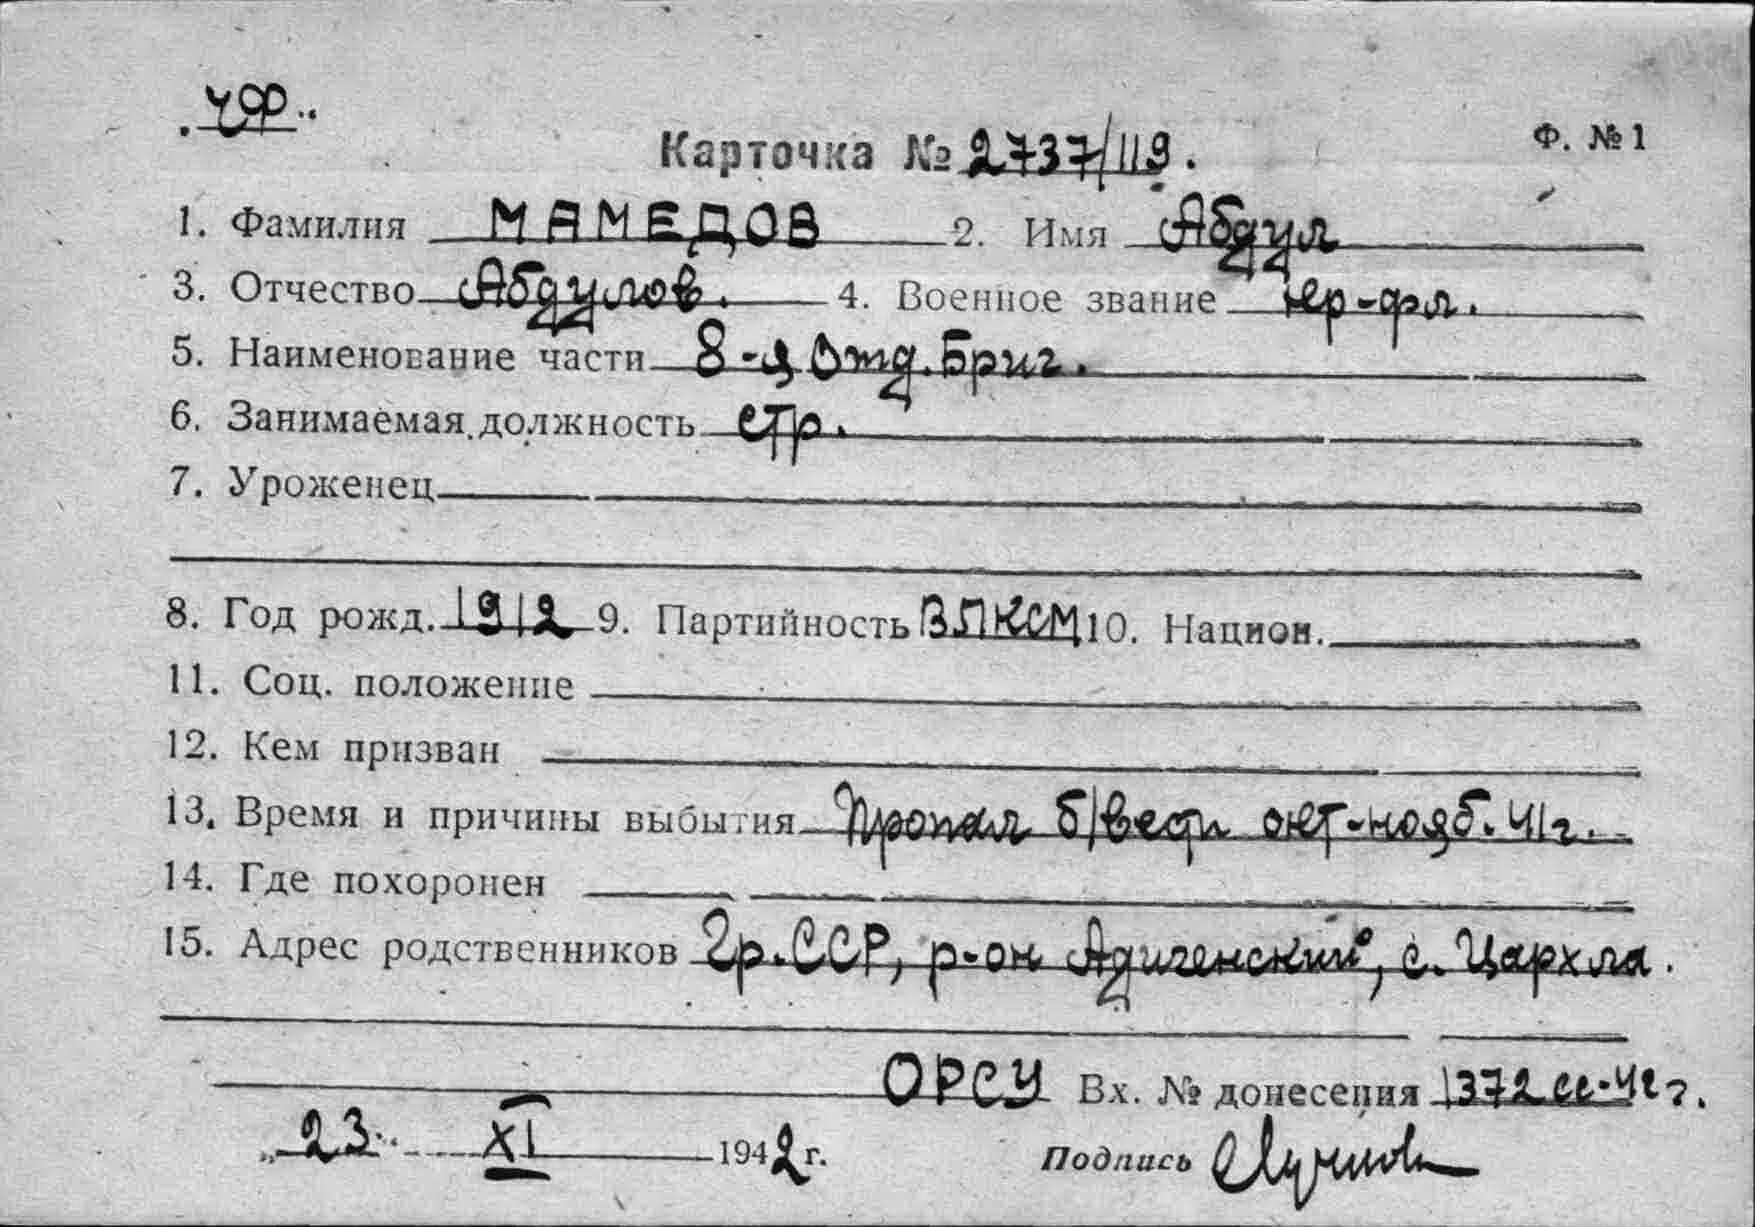 ЧФ.
Карточка № 2737/119.
Ф. № 1
1. Фамилия МАМЕДОВ 2. Имя Абдул
3. Отчество Абдулов. 4. Военное звание кр-фл.
5. Наименование части 8-я Отд. Бриг.
6. Занимаемая должность стр.
7. Уроженец
8. Год рожд. 1912 9. Партийность ВЛКСМ 10. Национ.
11. Соц. положение
12. Кем призван
13. Время и причины выбытия Пропал б/вести окт-нояб. 41г.
14. Где похоронен
15. Адрес родственников Гр.ССР, р-он Адигенский, с. Цархла.
ОРСУ Вх. № донесения 1372 сс-42 г.
„23" XI 1942 г. Подпись